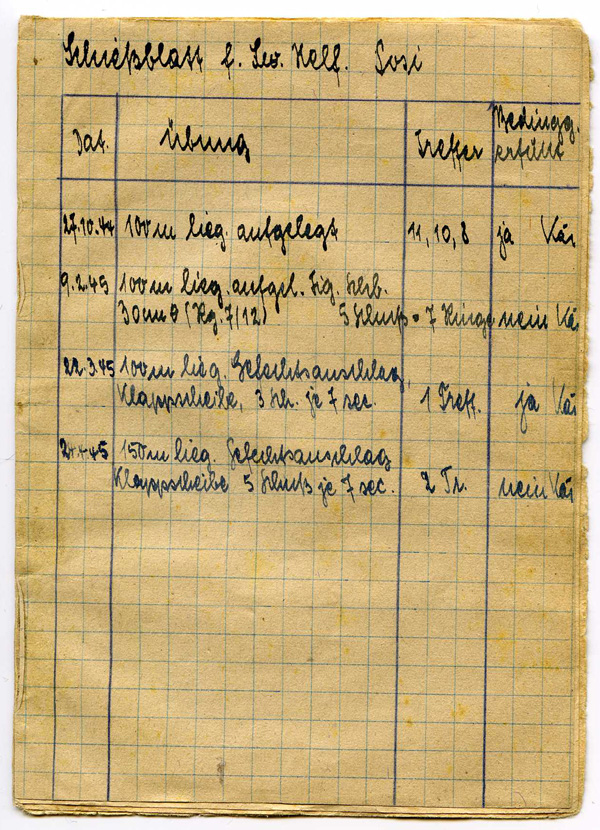 Schießblatt f. Lw. Helf. Sosi
Dat. Übung Treffer Bedingg. erfüllt
27.10.44 100 m lieg. aufgelegt 11, 10, 8 ja Kä
9.2.45 100 m lieg. aufgel. Fig. Schb.
30 cm (Rg. 7/12) 5 Schuß = 7 Ringe nein Kä
22.3.45 100 m lieg. Gefechtsanschlag,
Klappscheibe, 3 Sch. je 7 sec. 1 Treff. ja Kä
150 m lieg. Gefechtsanschlag
Klappscheibe 5 Schuß je 7 sec. 2 Tr. nein Kä